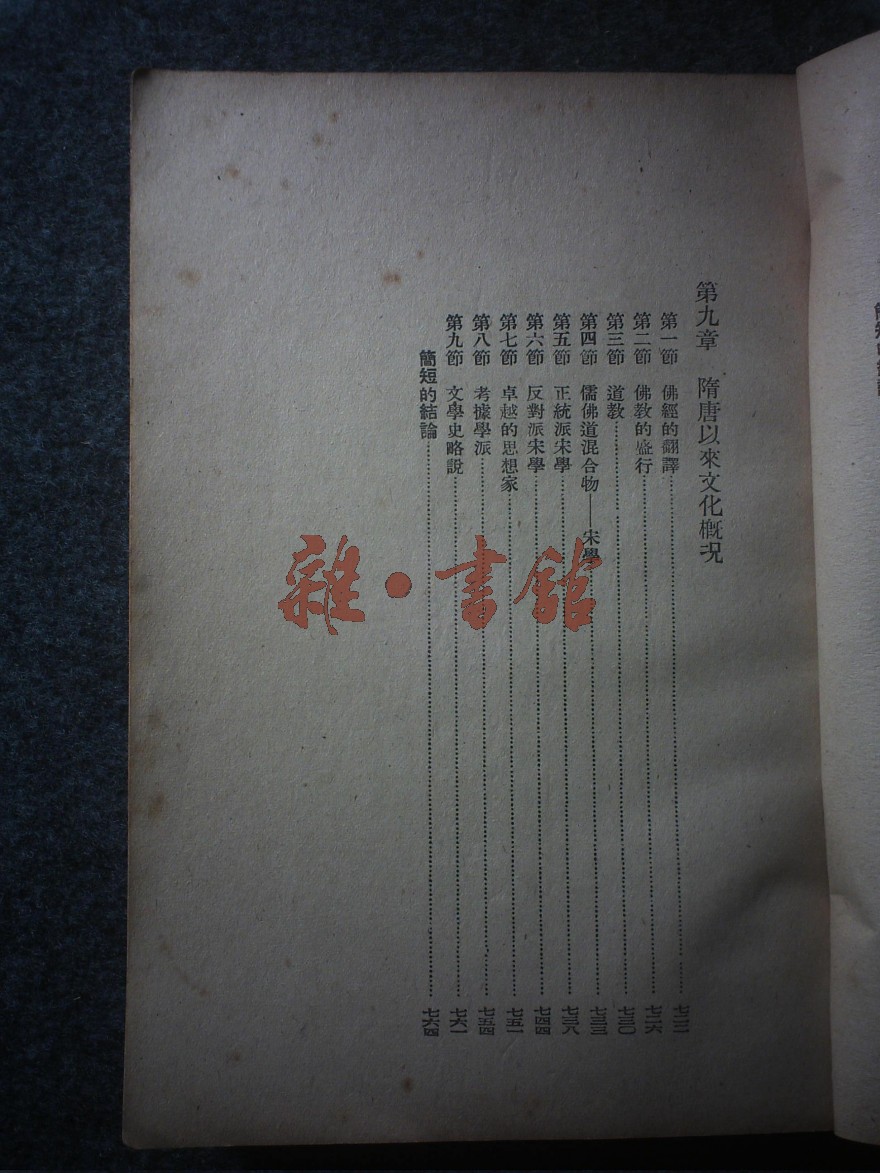 第九章 隋唐以來文化概況
第一節 佛經的翻譯……七二一
第二節 佛教的盛行……七二六
第三節 道教……七三〇
第四節 儒佛道混合物——宋學……七三三
第五節 正統派宋學……七三八
第六節 反對派宋學……七四四
第七節 卓越的思想家……七五一
第八節 考據學派……七五四
第九節 文學史略說……七六一
簡短的結論……七六四
雜·書館